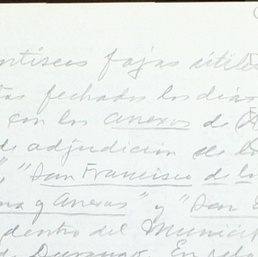 fojas útiles
fechados los días
con los anexos de
de adjudicion de
", "San Francisco de lo
y Anexas" y "San
dentro del Munici
de Durango. En